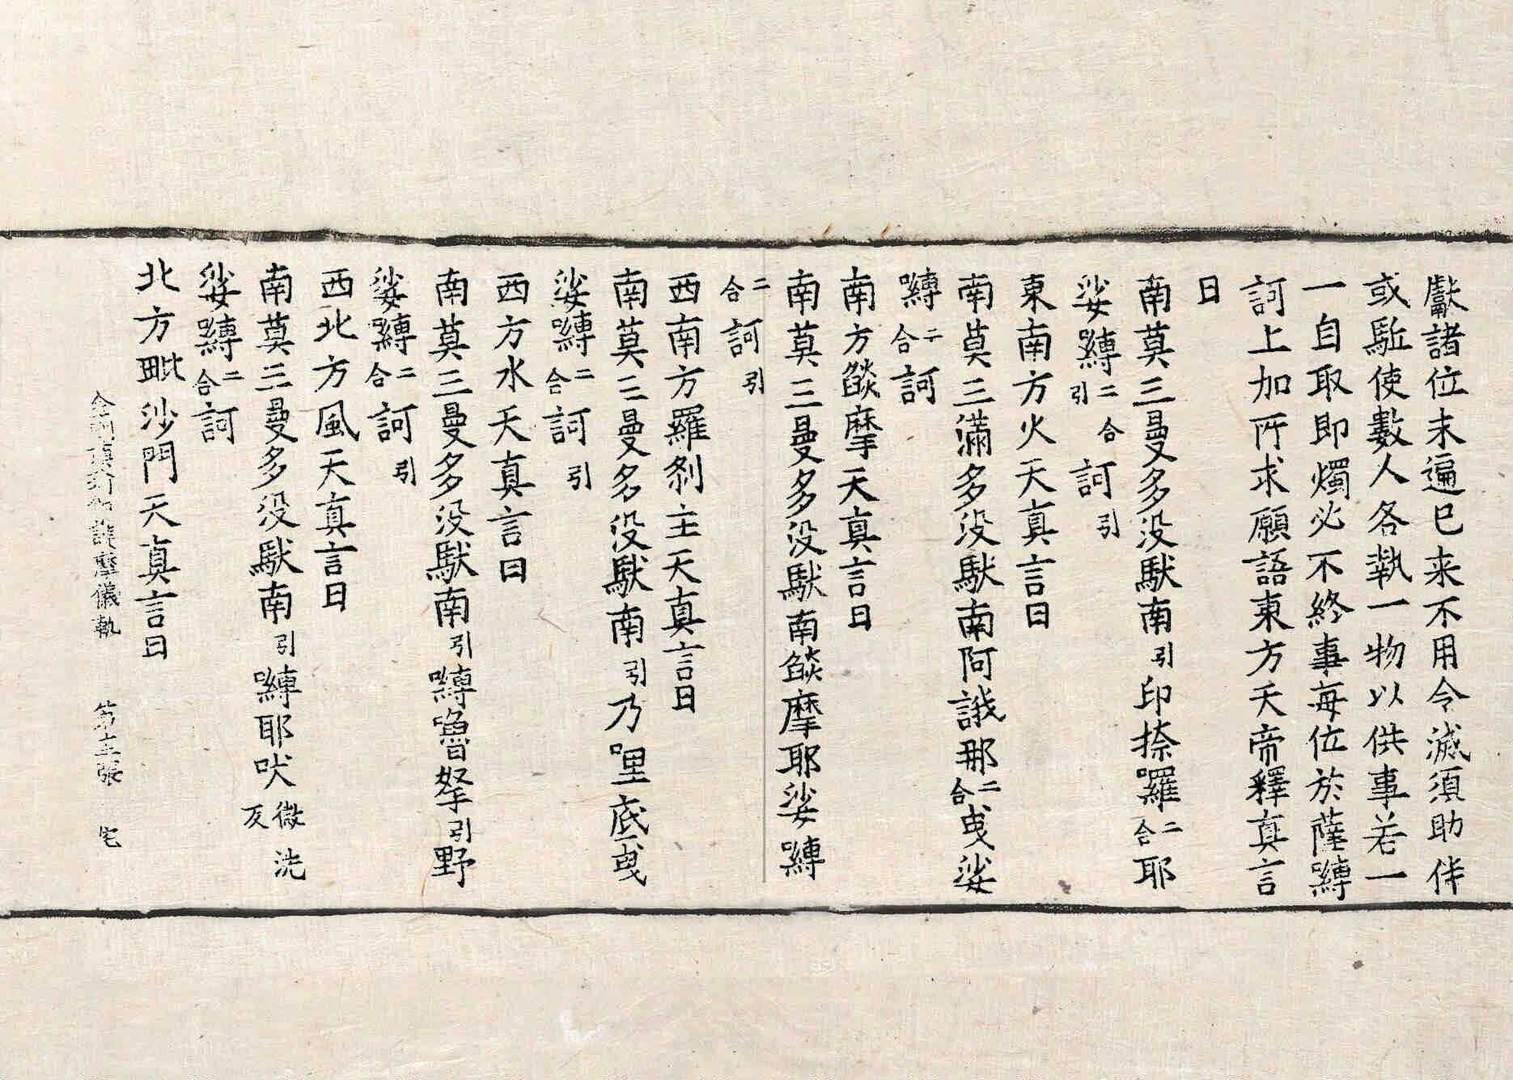 獻諸位未遍已来不用令滅須助伴
或駈使數人各執一物以供事若一
一自取即燭必不終事每位於薩嚩
訶上加所求願語東方天帝釋真言
曰
南莫三曼多没馱南引印捺羅二合耶
娑嚩二合引訶引
東南方火天真言曰
南莫三滿多没馱南阿誐那二合曳娑
嚩二合訶
南方燄摩天真言曰
南莫三曼多没馱南燄摩耶娑嚩
二合訶引
西南方羅剎主天真言曰
南莫三曼多没馱南引乃哩底曳
娑嚩二合訶引
西方水天真言曰
南莫三曼多没馱南引嚩嚕拏引野
娑嚩二合訶引
西北方風天真言曰
南莫三曼多没馱南引嚩耶吠微洗反
娑嚩二合訶
北方毗沙門天真言曰
金剛頂瑜伽護摩儀軌 第 張 宅